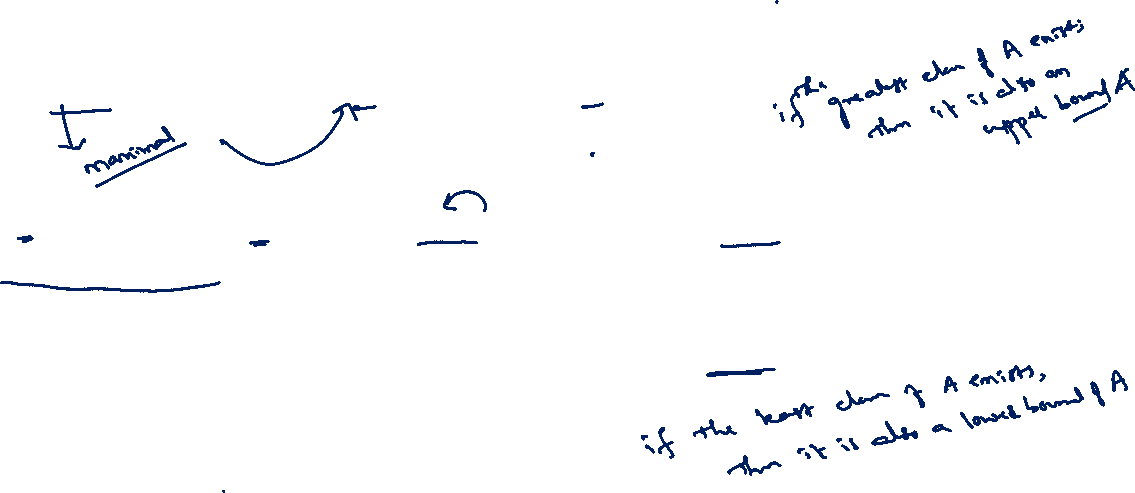 maximal
if the greatest elem of A exists
then it is also an
upper bound A
if the least elem of A exists,
then it is also a lower bound of A